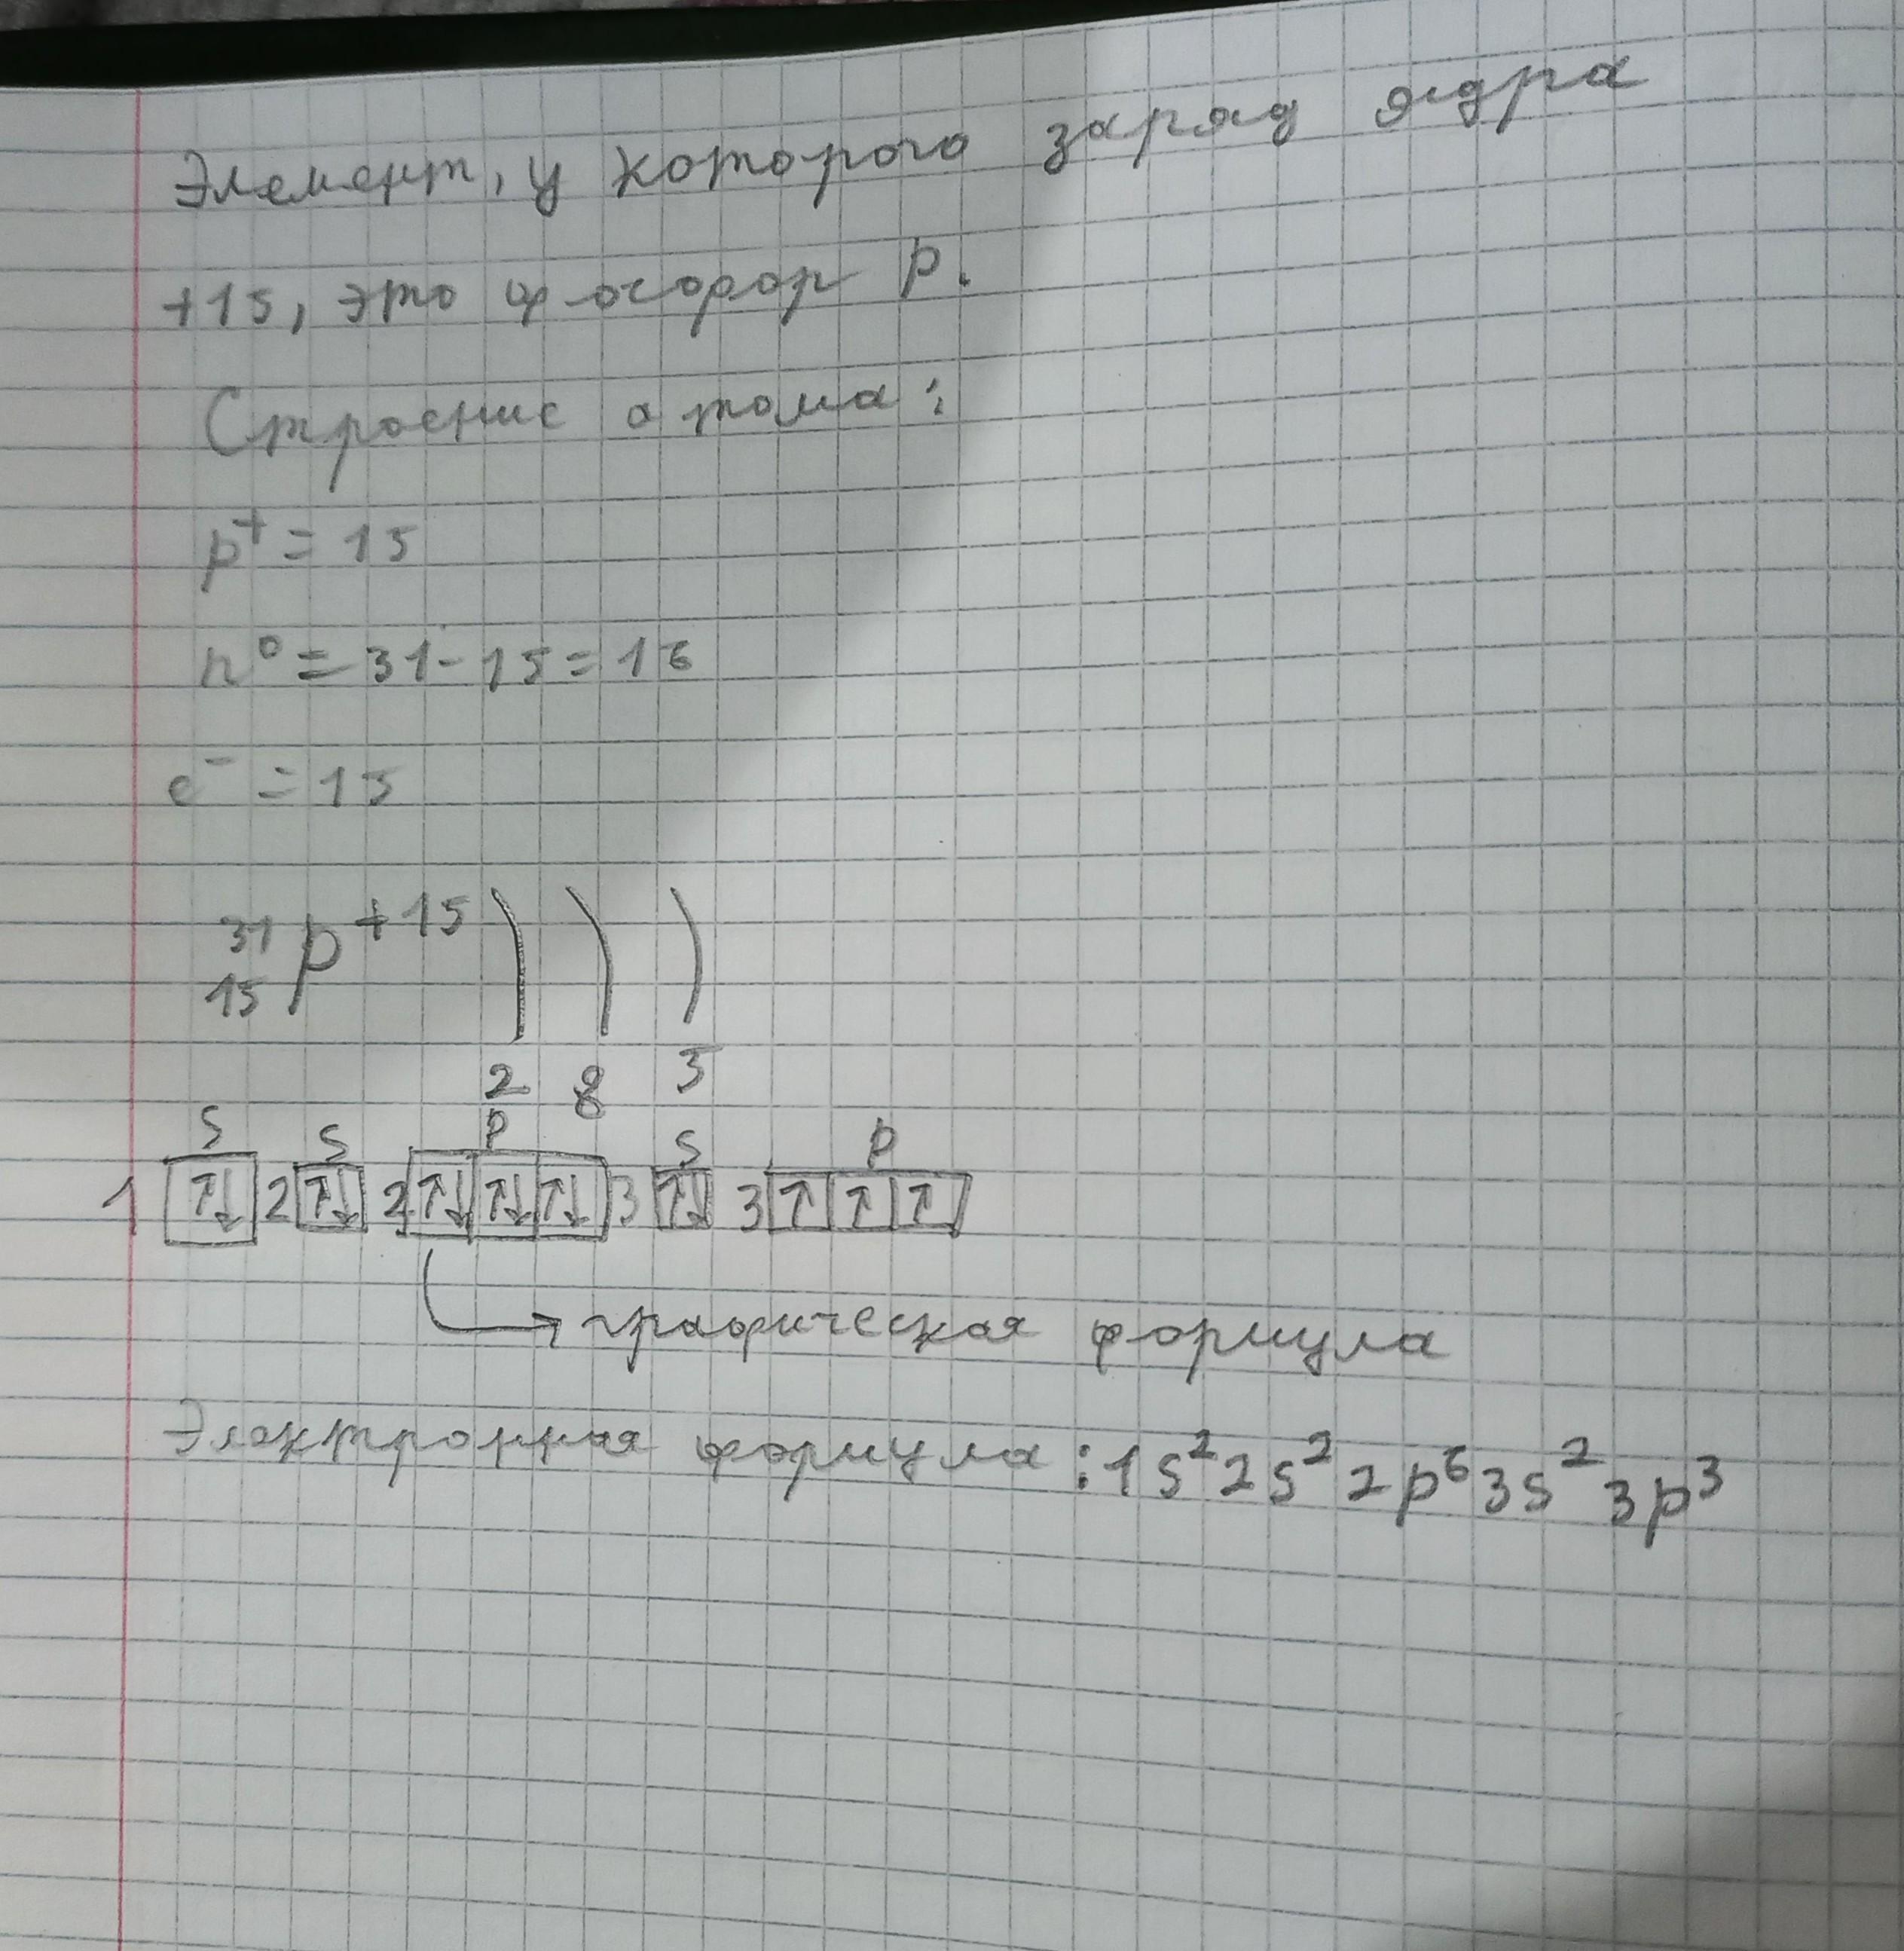 Элемент, у которого заряд ядра
+15, это фосфор P.
Строение атома:
p⁺ = 15
n⁰ = 31 - 15 = 16
e⁻ = 15
31
15 P +15 ) ) )
2 8 5
s s p s p
1 ↑↓ 2 ↑↓ 2 ↑↓ ↑↓ ↑↓ 3 ↑↓ 3 ↑ ↑ ↑
→ графическая формула
Электронная формула: 1s² 2s² 2p⁶ 3s² 3p³